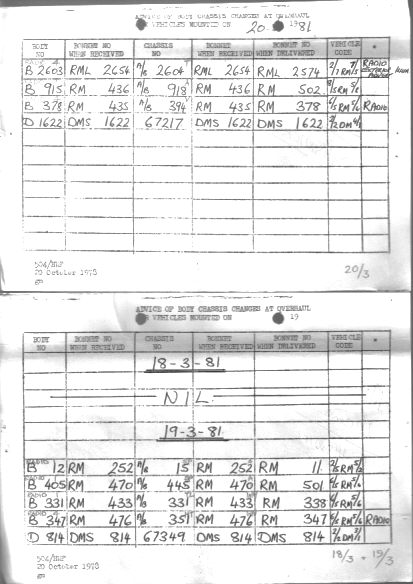 ADVICE OF BODY CHASSIS CHANGES AT OVERHAUL
VEHICLES MOUNTED ON 20 1981
BODY NO BONNET NO WHEN RECEIVED CHASSIS NO BONNET WHEN RECEIVED BONNET NO WHEN DELIVERED VEHICLE CODE *
B 2603 RML 2654 A/B 2604 RML 2654 RML 2574 RADIO
B 915 RM 436 A/B 918 RM 436 RM 502
B 378 RM 435 A/B 394 RM 435 RM 378 RADIO
D 1622 DMS 1622 67217 DMS 1622 DMS 1622
504/
20 October 1978
20/3
ADVICE OF BODY CHASSIS CHANGES AT OVERHAUL
VEHICLES MOUNTED ON 19
BODY NO BONNET NO WHEN RECEIVED CHASSIS NO BONNET WHEN RECEIVED BONNET NO WHEN DELIVERED VEHICLE CODE *
18-3-81
NIL
19-3-81
RADIO
B 12 RM 252 A/B 15 RM 252 RM 11
B 405 RM 470 A/B 445 RM 470 RM 501
B 331 RM 433 A/B 331 RM 433 RM 338
B 347 RM 476 A/B 351 RM 476 RM 347 RADIO
D 814 DMS 814 67349 DMS 814 DMS 814
504/
20 October 1978
18/3 + 19/3